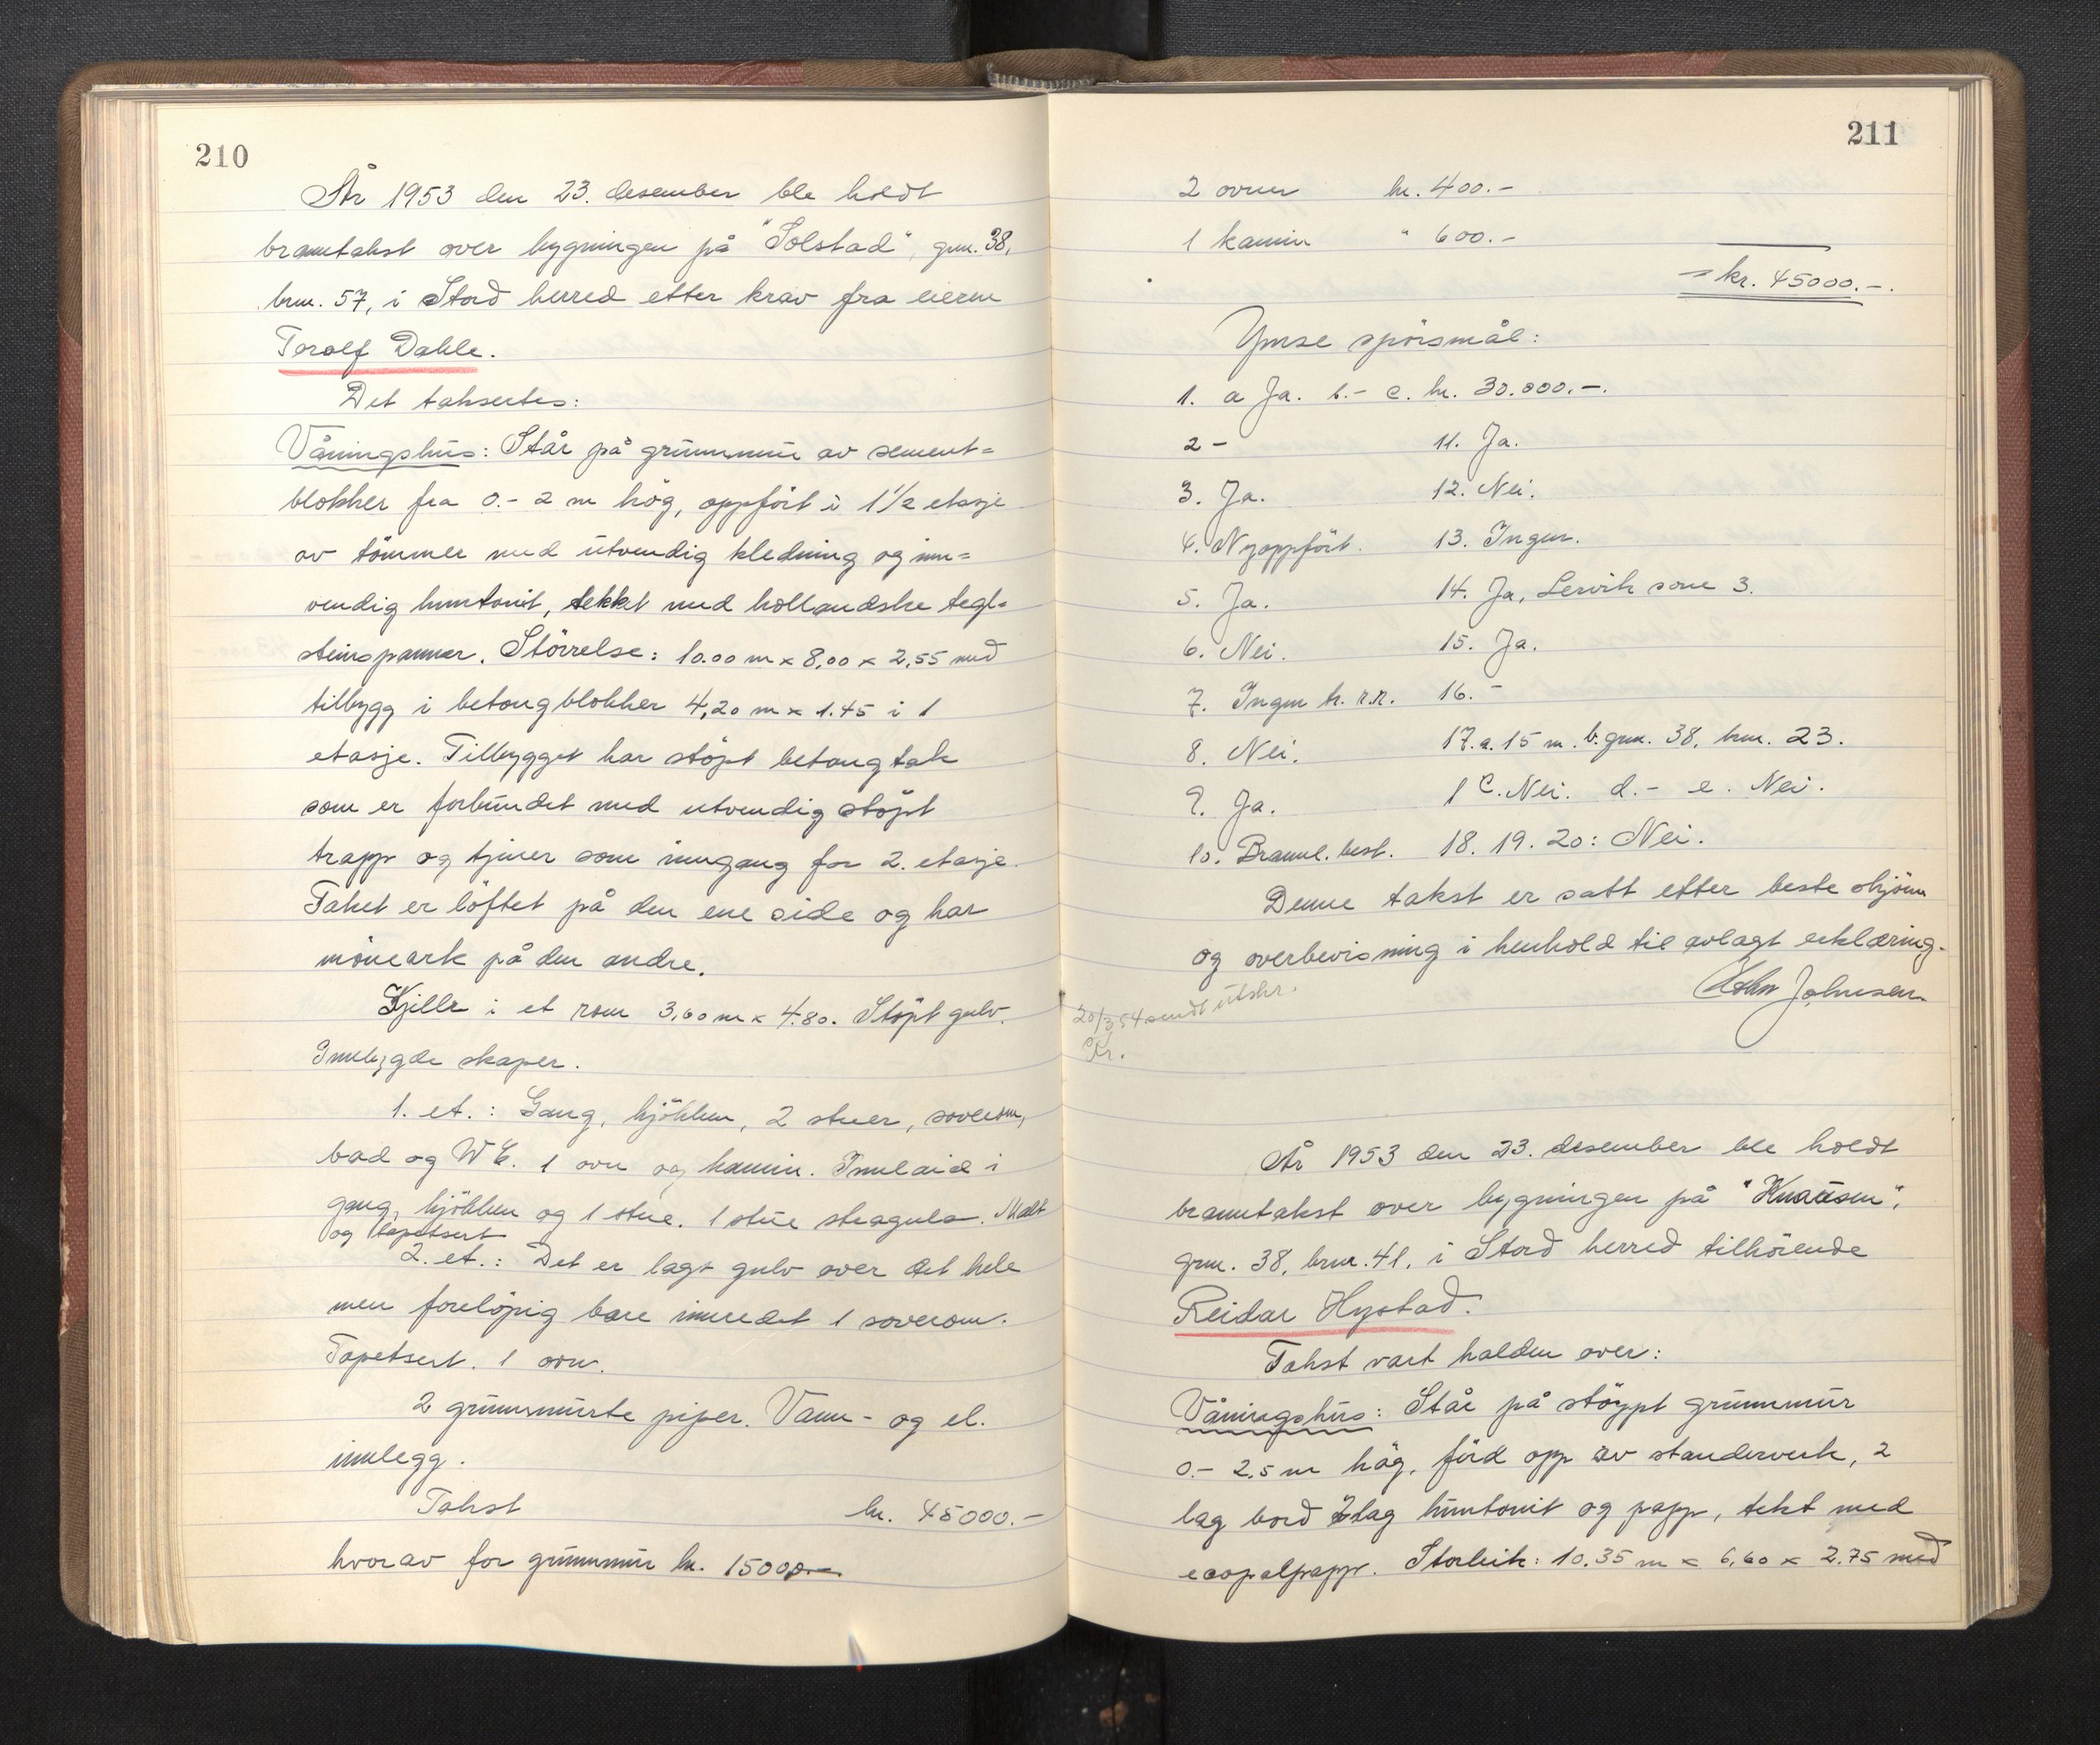 210
År 1953 den 23. desember ble holdt
branntakst over bygningen på "Solstad", gnr. 38,
brnr. 57, i Stord herred etter krav fra eieren
Torolf Dahle.
Det takseres:
Våningshus: Står på grunnmur av sement=
blokker fra 0.- 2 m høg, oppført i 1 1/2 etasje
av tömmer med utvendig kledning og inn=
vendig huntonit, tekket med hollandske tegl=
steinspanner. Störrelse: 10.00 m x 8,00 x 2,55 med
tilbygg i betongblokker 4,20 m x 1.45 i 1
etasje. Tilbygget har stöpt betongtak
som er forbundet med utvendig stöpt
trapp og tjener som inngang for 2. etasje.
Taket er löftet på den ene side og har
möneark på den andre.
Kjeller i et rom 3,60 m x 4.80. Stöpt gulv.
Innbygde skaper.
1. et.: Gang, kjökken, 2 stuer, soverom,
bad og WC. 1 ovn og kamin. Innlaid i
gang, kjökken og 1 stue. 1 stue stragula. Malt
og tapetsert
2. et.: Det er lagt gulv over det hele
men forelöpig bare innredet 1 soverom.
Tapetsert. 1 ovn.
2 grunnmurte piper. Vann- og el.
innlegg.
Takst kr. 45000.-
hvorav for grunnmur kr. 15000.-
211
2 ovner kr. 400.-
1 kamin " 600.-
= kr. 45000.-.
Ymse spörsmål:
1. a Ja. b.- c. kr. 30.000.-.
2 - 11. Ja.
3. Ja. 12. Nei.
4. Nyoppfört. 13. Ingen.
5. Ja. 14. Ja, Lervik som 3.
6. Nei. 15. Ja.
7. Ingen h. r.r. 16. -
8. Nei. 17. a. 15 m. b. gnr. 38, brnr. 23.
9. Ja. 1 c. Nei. d.- e. Nei.
10. Brannl. best. 18. 19. 20: Nei.
Denne takst er satt etter beste skjönn
og overbevisning i henhold til avlagt erklæring.
Johnsen.
20/3 54 sendt utskr.
Kr.
År 1953 den 23. desember ble holdt
branntakst over bygningen på "Knausen",
gnr. 38, brnr. 41, i Stord herred tilhörende
Reidar Hystad.
Takst vart halden over:
Våningshus: Står på støypt grunnmur
0.- 2,5 m høg, förd opp av standerverk, 2
lag bord 2 lag huntonit og papp, tekt med
ecopalpapp. Storleik: 10.35 m x 6,60 x 2.75 med